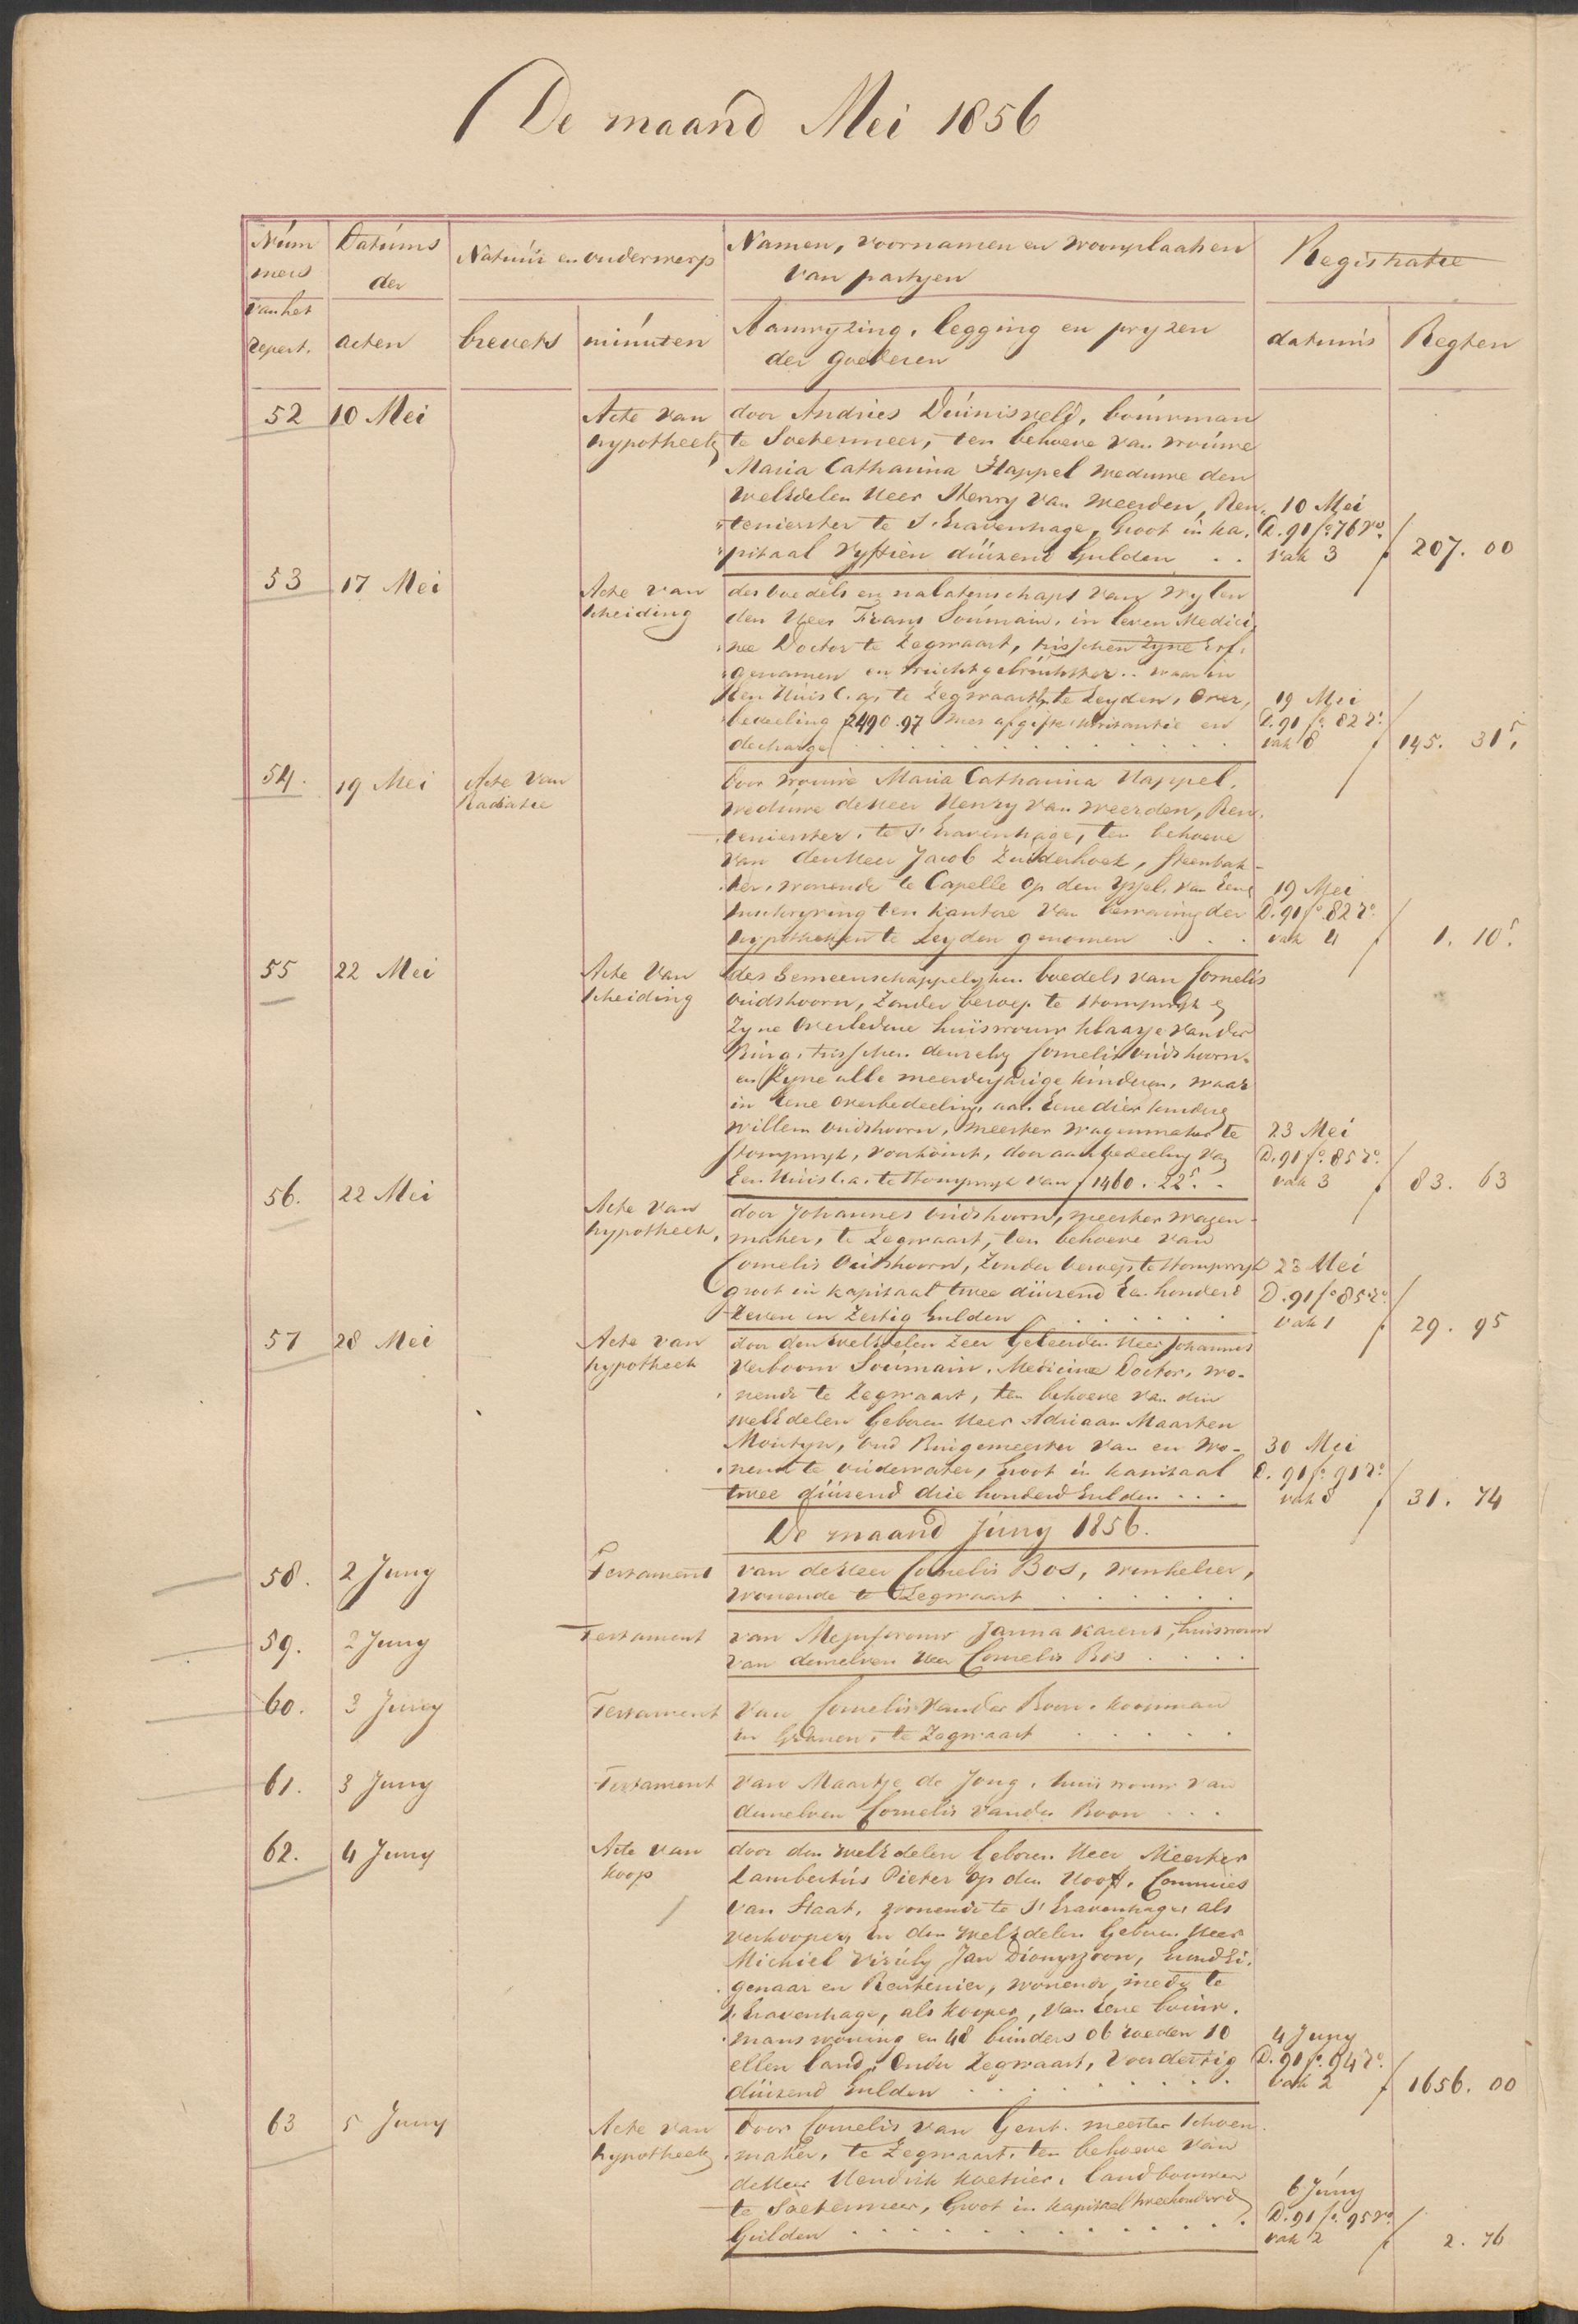 De maand Mei 1856
Num
mers
van het
repert.
Datums
der
acten
Natuur en onderwerp
brevets
minuten
Namen, voornamen en woonplaatsen
van partyen
Aanwyzing, legging en pryzen
der goederen
Registratie
datums
Regten
52
10 Mei
Acte van
hypotheek
door Andries Duinisveld, bouwman
te Soetermeer, ten behoeve van vrouwe
Maria Catharina Happel weduwe den
WelEdelen Heer Henry van Weerden, Ren-
tenierster te s'Gravenhage, Groot in ka-
pitaal Vyftien duizend Gulden . .
10 Mei
D. 91 fo. 76 vo.
vak 3
f 207. 00
53
17 Mei
Acte van
scheiding
des boedels en nalatenschaps van wylen
den Heer Frans Soumain, in leven Medici-
nee Doctor te Zegwaart, tusschen zyne Erf-
genamen en vruchtgebruikster .. waarin
Een Huis C. a. te Zegwaart te Leyden, Over-
bedeeling f 2490.97 met afgifte kwitantie en
decharge . . . . . . . . . .
19 Mei
D. 91 fo. 82 ro.
vak 8
f 145. 31 5.
54.
19 Mei
Acte van
Radiatie
door vrouwe Maria Catharina Happel,
weduwe de Heer Henry van Weerden, Ren-
tenierster, te s'Gravenhage, ten behoeve
van den Heer Jacob Zuiderhoek, steenbak-
ker, wonende te Capelle op den Yssel, van Eene
Inschryving ten kantore van bewaring der
hypotheken te Leyden genomen . . .
19 Mei
D. 91 fo. 82 ro.
vak 4
f 1. 10 5.
55
22 Mei
Acte van
scheiding
des Gemeenschappelyken boedels van Cornelis
Oudshoorn, Zonder beroep te Stompwyk en
Zyne Overledene huisvrouw Klaasje van der
Burg, tusschen denzelve Cornelis Oudshoorn
en Zyne alle meerderjarige kinderen, waar
in Eene overbedeeling, aan Eene dier kinderen
Willem Oudshoorn, meester wagenmaker te
Stompwyk, voorkomt, door aanbedeeling van
Een Huis C.a. te Stompwyk van f 1460. 22 5. .
23 Mei
D. 91 fo. 85 ro.
vak 3
f 83. 63
56.
22 Mei
Acte van
hypotheek,
door Johannes Oudshoorn, meester wagen-
maker, te Zegwaart, ten behoeve van
Cornelis Oudshoorn, Zonder beroep te Stompwyk
groot in kapitaal twee duizend Een honderd
Zeven en Zestig Gulden . . . . . .
23 Mei
D. 91 fo 85 ro.
vak 1
f 29. 95
57
28 Mei
Acte van
hypotheek
door den WelEdelen Zeer Geleerden Heer Johannes
Verboom Soumain, Medicine Doctor, wo-
nende te Zegwaart, ten behoeve van den
WelEdelen Geboren Heer Adriaan Maarten
Montyn, Oud Burgemeester van en wo-
nende te Oudewater, Groot in kapitaal
twee duizend drie honderd Gulden . . .
30 Mei
D. 91 fo. 91 ro.
vak 8
f 31. 74
De maand Juny 1856.
58.
2 Juny
Testament
van de Heer Cornelis Bos, winkelier,
wonende te Zegwaart . . . . . .
59.
2 Juny
Testament
van Mejufvrouw Janna Karens, huisvrouw
van denzelven Heer Cornelis Bos . . . .
60.
3 Juny
Testament
van Cornelis van der Boon, koopman
in Granen, te Zegwaart . . . . .
61.
3 Juny
Testament
van Maartje de Jong, huisvrouw van
denzelven Cornelis van der Boon . . .
62.
4 Juny
Acte van
koop
door den WelEdelen Geboren Heer Meester
Lambertus Pieter op den Hooff, Commies
van Staat, wonende te s'Gravenhage, als
verkooper, en den WelEdelen Geboren Heer
Michiel Viruly Jan Dionyszoon, GrondEi-
genaar en Rentenier, wonende mede te
s'Gravenhage, als kooper, van Eene bouw-
manswoning en 48 bunders 06 roeden 10
ellen land, Onder Zegwaart, voor dertig
duizend Gulden . . . . . . . .
4 Juny
D. 91 fo. 94 ro.
vak 2
f 1656. 00
63
5 Juny
Acte van
hypotheek
door Cornelis van Gent, meester schoen-
maker, te Zegwaart, ten behoeve van
de Heer Hendrik Koetsier, landbouwer
te Soetermeer, Groot in kapitaal tweehonderd
Gulden . . . . . . . . . . . .
6 Juny
D. 91 fo. 95 vo.
vak 2
f 2. 76